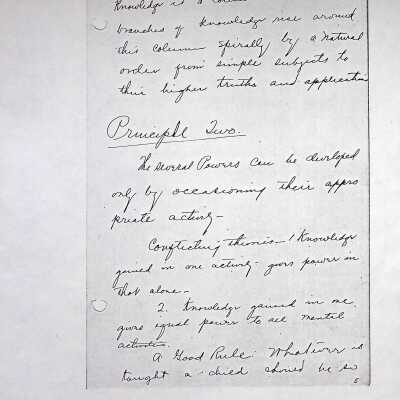 Knowledge is a
branches of knowledge rise around
this column spirally by a natural
order from simple subjects to
their higher truths and application
Principle Two.
The several Powers can be developed
only by occasioning their appro
priate activity-
Conflicting theories-1 Knowledge
gained in one activity- gives power in
that alone-
2. Knowledge gained in one,
gives equal power to all mental
activities.
A Good Rule: Whatever is
taught a child should be so
5